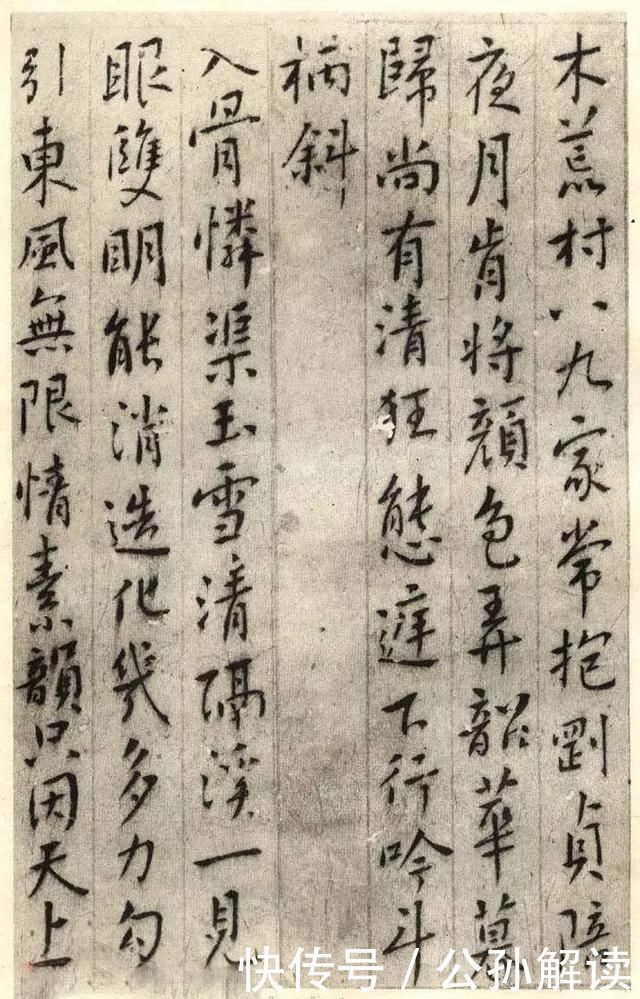 木荒村八九家常抱剛貞陪
夜月肯將顔色弄韶華莫
歸尚有清狂態庭下行吟斗
柄斜
入骨憐渠玉雪清隔溪一見
眼雙明能消造化幾多力勾
引東風無限情素韻只因天上
快传号 / 公孙解读